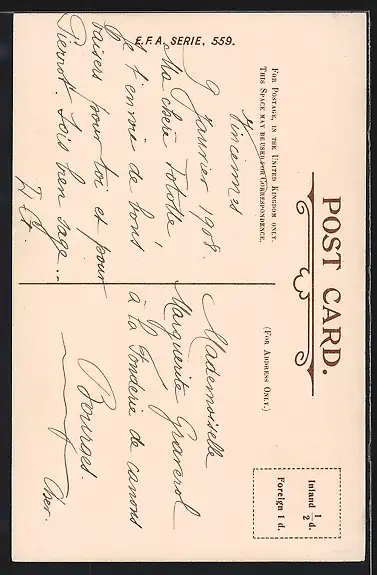 E.F.A. SERIE, 559.
POST CARD.
FOR POSTAGE, IN THE UNITED KINGDOM ONLY.
THIS SPACE MAY BE USED FOR CORRESPONDENCE.
(FOR ADDRESS ONLY.)
Inland ½ d.
Foreign 1 d.
Vincennes
9 Janvier 1908.
Ma chère Tototte
Je t'envoie de bons
baisers pour toi et pour
Pierrot. Sois bien sage...
Mademoiselle
Marguerite Graverol
à la Fonderie de canons
Bourges.
Cher.